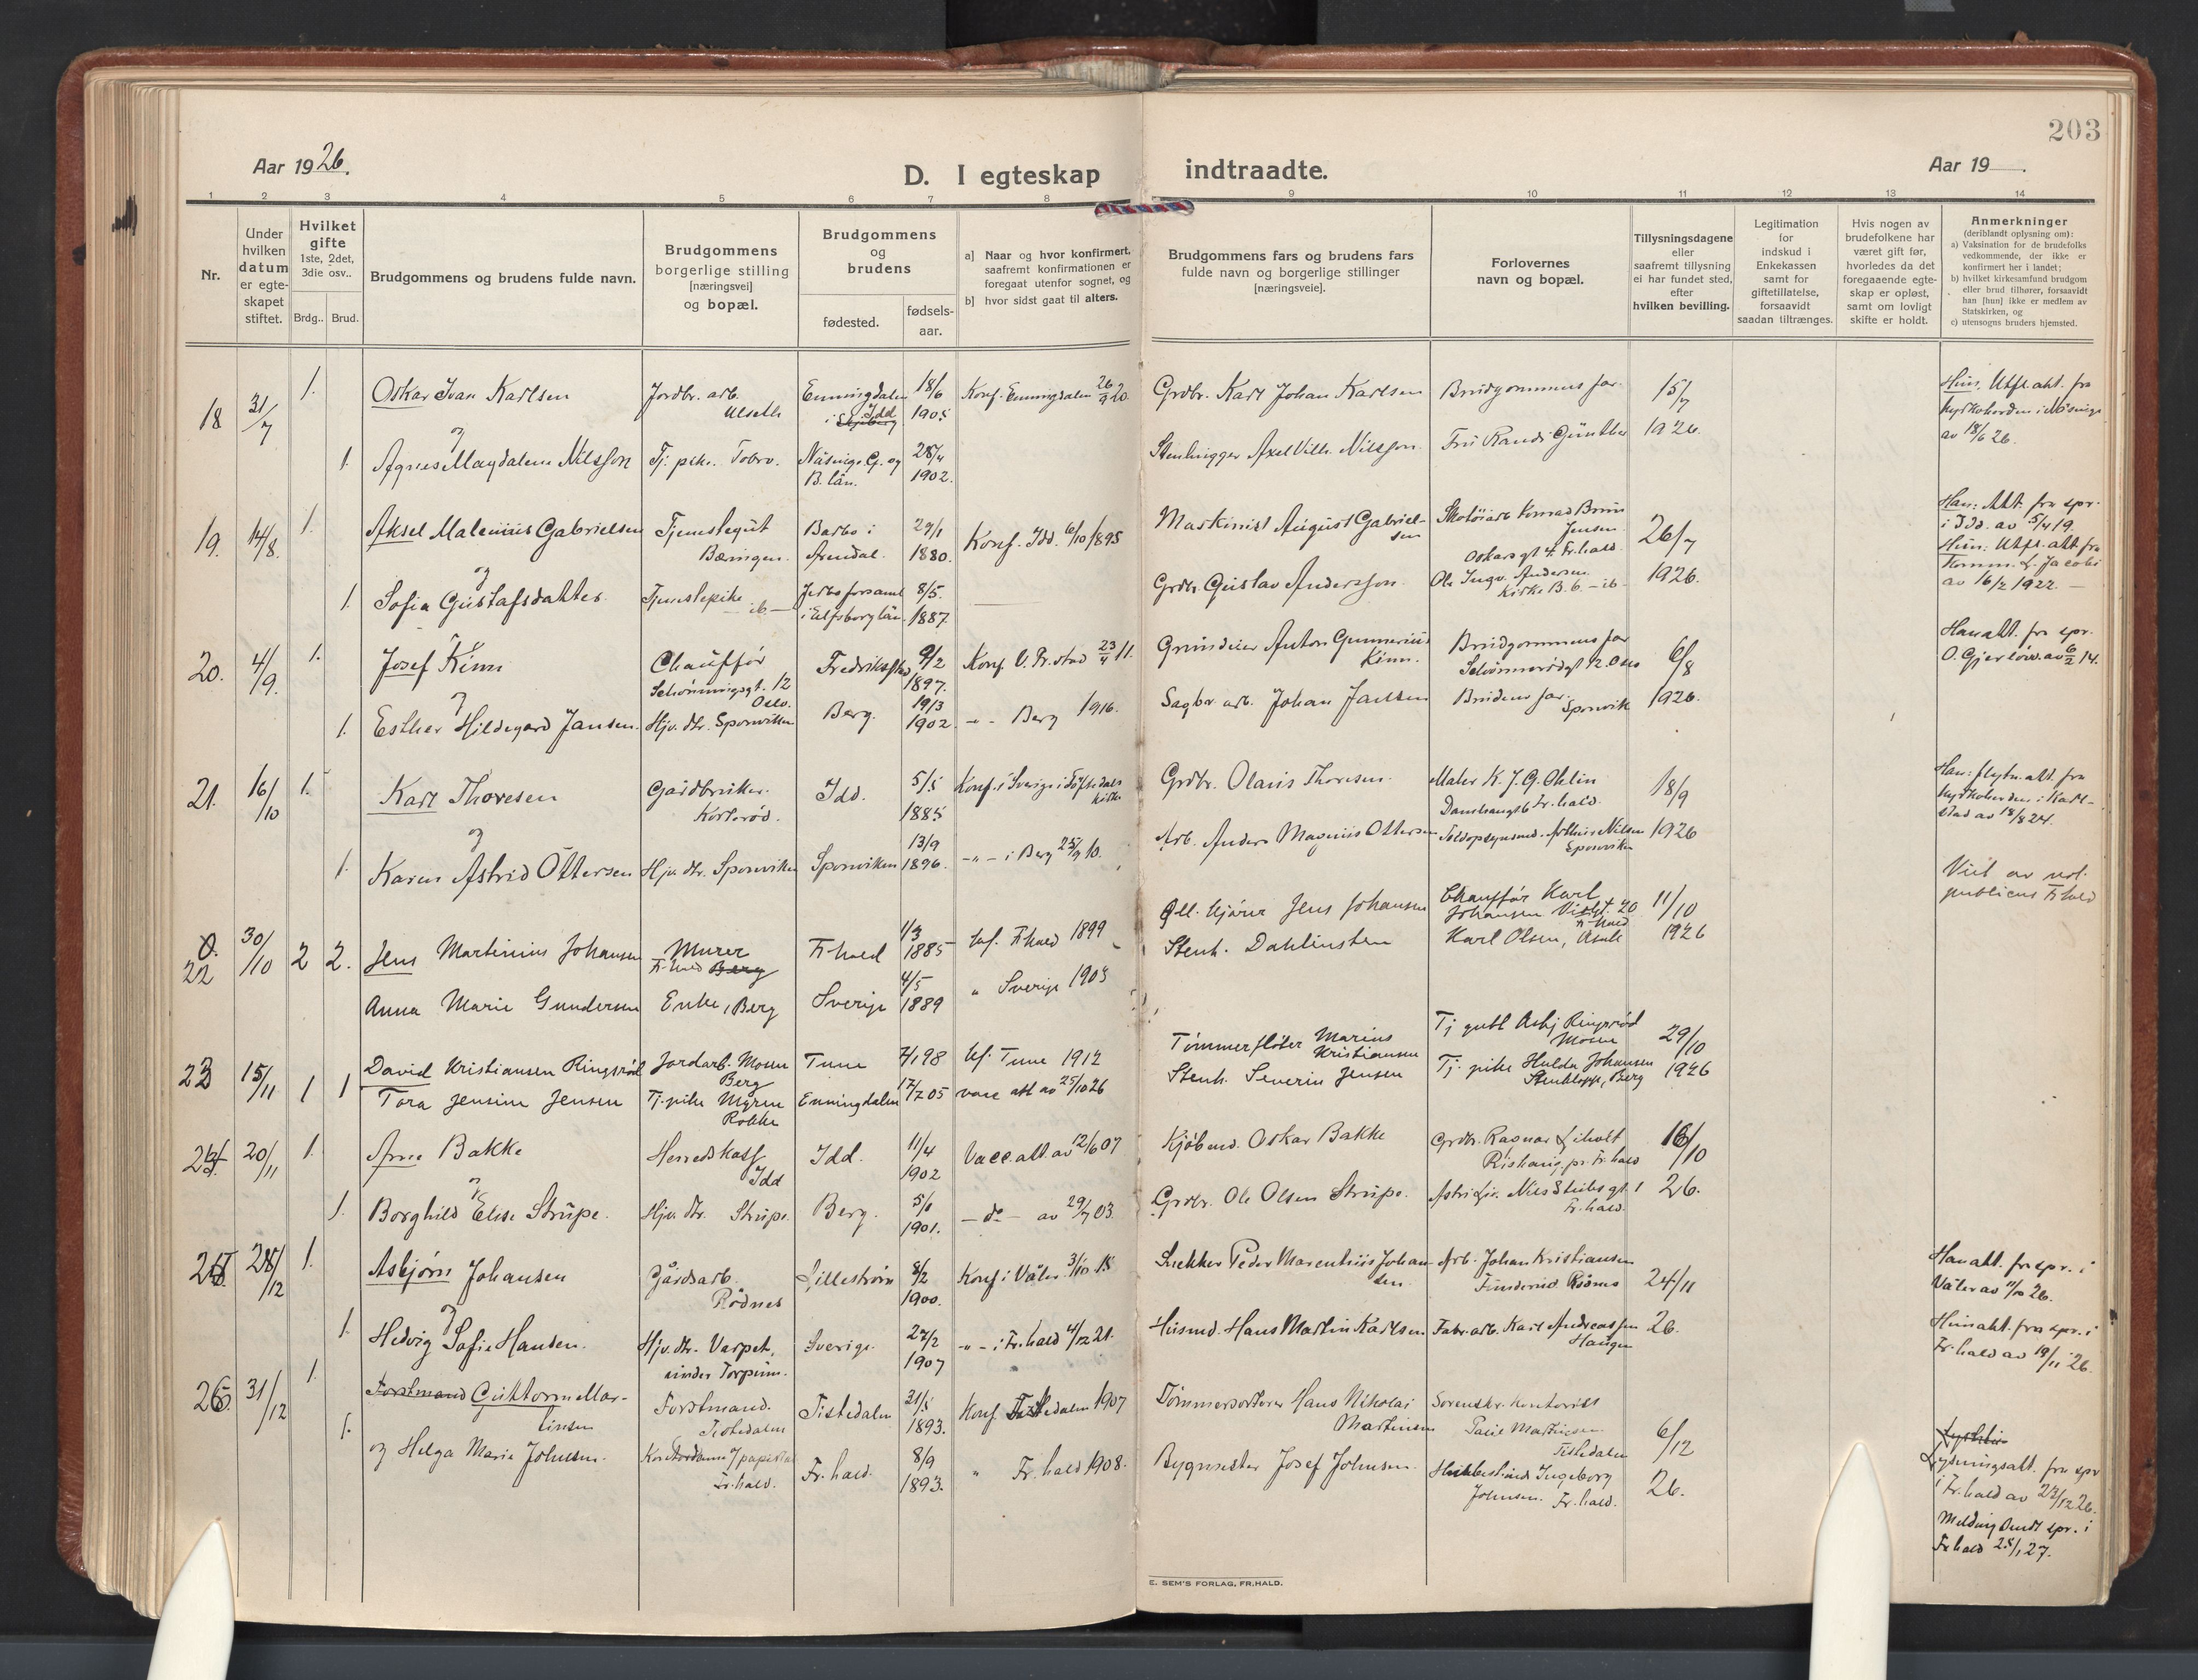 203
Aar 1926.
D. I egteskap indtraadte.
Aar 19 .
1 2 3 4 5 6 7 8 9 10 11 12 13 14
Nr.
Under hvilken datum er egteskapet stiftet.
Hvilket gifte 1ste, 2det, 3die osv..
Brdg.. Brud.
Brudgommens og brudens fulde navn.
Brudgommens borgerlige stilling [næringsvei] og bopæl.
Brudgommens og brudens
fødested.
fødselsaar.
a] Naar og hvor konfirmert, saafremt konfirmationen er foregaat utenfor sognet, og
b] hvor sidst gaat til alters.
Brudgommens fars og brudens fars fulde navn og borgerlige stillinger [næringsveie].
Forlovernes navn og bopæl.
Tillysningsdagene eller saafremt tillysning ei har fundet sted, efter hvilken bevilling.
Legitimation for indskud i Enkekassen samt for giftetillatelse, forsaavidt saadan tiltrænges.
Hvis nogen av brudefolkene har været gift før, hvorledes da det foregaaende egteskap er opløst, samt om lovligt skifte er holdt.
Anmerkninger
(deriblandt oplysning om):
a) Vaksination for de brudefolks vedkommende, der ikke er konfirmert her i landet;
b) hvilket kirkesamfund brudgom eller brud tilhører, forsaavidt han [hun] ikke er medlem av Statskirken, og
c) utensogns bruders hjemsted.
18 31/7 1. Oskar Ivar Karlsen Jordbr. arb. Ulseth Enningdalen i Idd 18/6 1905 Konf. Enningdalen 26/9 20. Grdbr. Karl Johan Karlsen Brudgommens far 15/7 1926.
og
1. Agnes Magdalena Nilsson Tj. pike. Näsinge G. og B. län. 28/4 1902. Stenhugger Axel Vilh. Nilsson. Fru Randi Günther
Hun. Utfl. att. fra kyrkoherden i Näsinge av 18/6 26.
19. 14/8. 1. Aksel Malenius Gabrielsen Tjenestegut Bæringen. Barbo i Arendal. 29/1 1880. Konf. Idd. 6/10 1895 Maskinist August Gabrielsen Konrad Brun Jensen Oskarsgt 4. Fr.hald. 26/7 1926.
og
1. Sofia Gustafsdatter Tjenestepike -ib- i Elfsborg län. 8/5. 1887. Grdbr. Gustav Andersson. Ole Ingv. Andersen -ib-
Han: Att. fra spr. i Idd. av 5/4 19.
Hun: Utfl. att. fra Jacobi av 16/2 1922.
20. 4/9. 1. Josef Kinn Chauffør Schønningsgt. 12 Oslo. Fredrikstad 9/2 1897. Konf. Ø. Fr.stad 23/4 11. Anton Gunnerius Kinn. Brudgommens far 6/8 1926.
og
1. Esther Hildegard Jansen. Hjv. dtr. Sponviken Berg. 19/3 1902. -"- Berg 1916. Sagbr. arb. Johan Jansen Brudens far. Sponvik
Han att. fra spr. O. Gjerløw. av 6/2 14.
21. 16/10 1. Karl Thoresen Gårdbruker. Korterød. Idd. 5/5 1885 Konf. i Sverige i Töftedals kirke Grdbr. Olaus Thoresen. Maler K. J. G. Ohlin Fr.hald. 18/9 1926
og
1. Karen Astrid Ottersen Hjv. dtr. Sponviken Sponviken 13/9 1896. -"- i Berg 25/9 10. Arb. Anders Magnus Ottersen Toldopsynsmd. Arthur Nilsen Sponviken
Han: flytn. att. fra kyrkoherden i Karlstad av 18/8 24.
0. 22 30/10 2 2. Jens Martinius Johansen Murer Fr.hald Berg Fr.hald 1/3 1885 kf. Fr.hald 1899 Jens Johansen Chauffør Karl Johansen 20 Fr.hald 11/10 1926
Anna Marie Gundersen Enke, Berg Sverige 4/5 1889 " Sverige 1905 Stenh. Dahlinsten Karl Olsen, Asak
Viet av not. publicus Fr.hald
23 15/11 1 1 David Kristiansen Ringsrød Jordarb. Mosen Berg Tune 7/1 98 kf. Tune 1912 Tømmerfløter Marius Kristiansen Tj gutt Asbj Ringsrød Mosen 29/10 1926
Tora Jensine Jensen Tj. pike Myren Rokke Enningdalen 17/7 05 vacc att av 25/10 26 Stenh. Severin Jensen Tj. pike Hulda Johansen Berg
24. 20/11 1. Arne Bakke Herredskass Idd Idd. 11/4 1902 Vacc. att. av 12/6 07 Kjøbmd. Oskar Bakke Grdbr. Ragnar Liholt pr. Fr.hald 16/10 26.
og
1. Borghild Elise Strupe. Hjv. dtr. Strupe. Berg. 5/6 1901. -do- av 29/7 03. Grdbr. Ole Olsen Strupe. Nils Stubsgt. 1 Fr.hald.
25. 28/12 1. Asbjørn Johansen Gårdsarb. Rødnes Lillestrøm 8/2 1900. Konf. i Våler 3/10 15 Snekker Peder Marentius Johansen. Arb. Johan Kristiansen 24/11 26.
og
1. Hedvig Sofie Hansen. Hjv. dtr. Varpet, under Torpum. Sverige. 27/2 1907 -"- i Fr.hald 4/12 21. Husmd. Hans Martin Karlsen Fabr. arb. Karl Andreassen Haugen
Han att. fra spr. i Våler av 11/10 26.
Hun att. fra spr. i Fr.hald av 19/11 26.
26. 31/12 1. Forstmand Guttorm Martinsen Forstmand. Tistedalen Tistedalen 21/5 1893. Konf Tistedalen 1907 Tømmersorterer Hans Nikolai Martinsen Sorenskr. kontorist Martinsen Tistedalen 6/12 26.
1. og Helga Marie Johnsen. Kontordame Fr.hald. Fr.hald. 8/9 1893. " Fr.hald 1908. Bygmester Josef Johnsen. Ingeborg Johnsen. Fr.hald.
Lysningsatt. fra spr i Fr.hald av 27/12 26.
Melding sendt spr. i Fr.hald 25/1 27.
E. SEM'S FORLAG, FR.HALD.